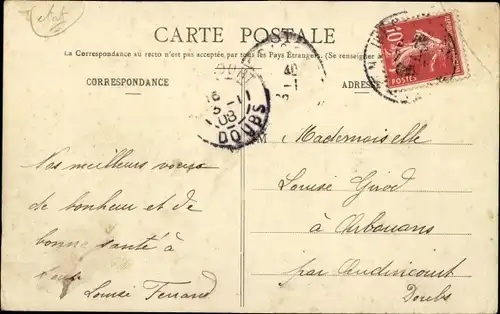 CARTE POSTALE
La Correspondance au recto n'est pas acceptée par tous les Pays Étrangers. (Se renseigner à
CORRESPONDANCE
ADRESSE
10
POSTES
16
5-11
08
DOUBS
40
M Mademoiselle
Louise Girod
à Arbouans
par Audincourt
Doubs
Nos meilleurs voeux
de bonheur et de
bonne santé à
Louise Ferrand